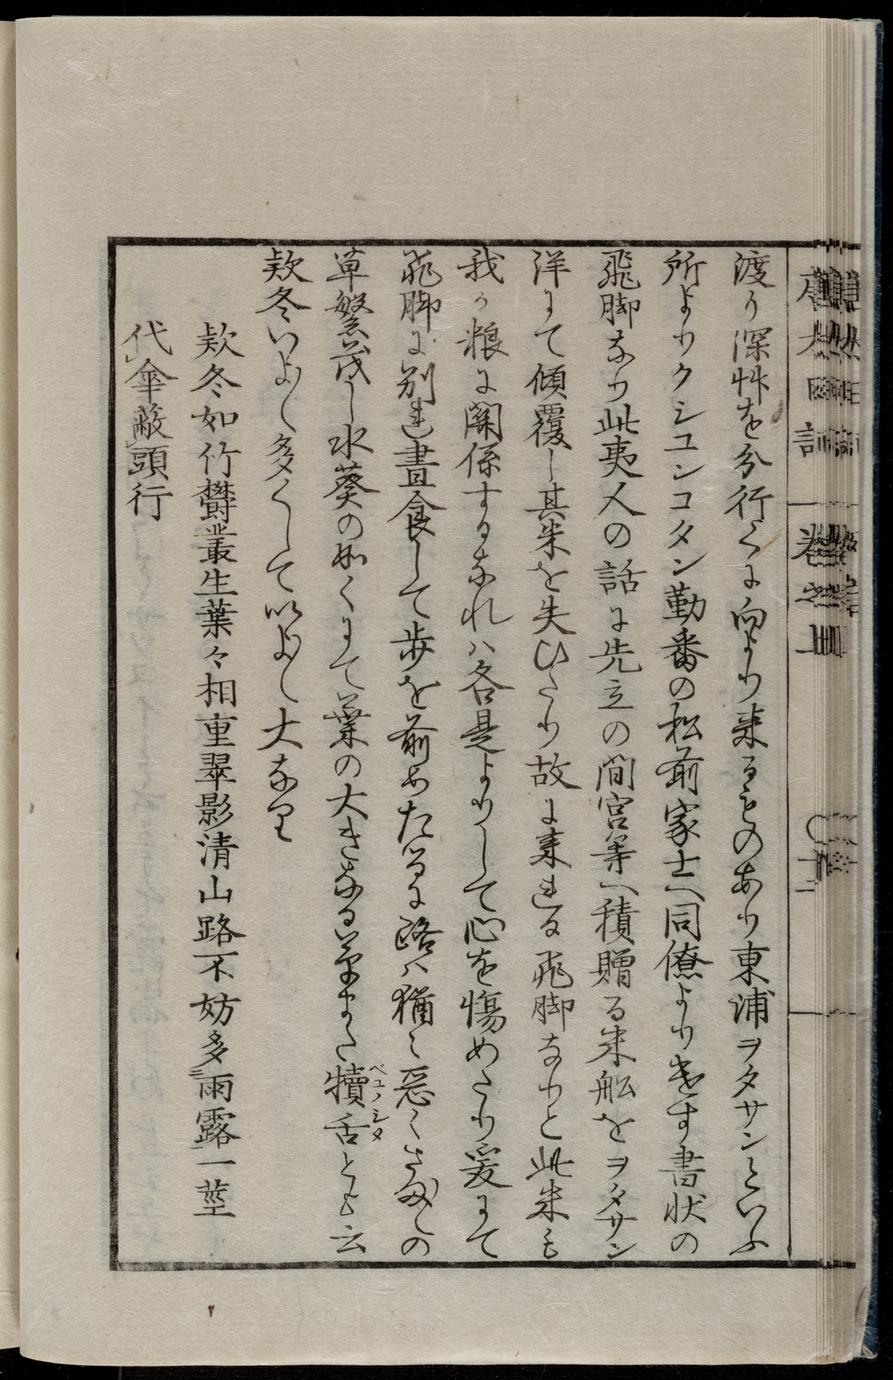 渡り深艸を分行くに向より来るものあり東浦ヲタサンといふ
所よりクシユンコタン勤番の松前家士へ同僚より遣す書状の
飛脚なり此夷人の話に先立の間宮等へ積贈る米舩をヲタサン
洋にて傾覆し其米を失ひたり故に来れる飛脚なりと此米も
我々粮に関係するなれハ各是よりして心を慯めたり爰にて
飛脚に別れ晝食して歩を前めたるに路ハ猶々悪くさま〳〵の
草繁茂し水葵の如くにて葉の大きなる草また犢舌とも云
ベコノシタ
欵冬いよ〳〵多くして以よ〳〵大なり
欵冬如竹欝叢生葉々相重翠影清山路不妨多雨露一莖
代傘蔽頭行
巻之上
十二